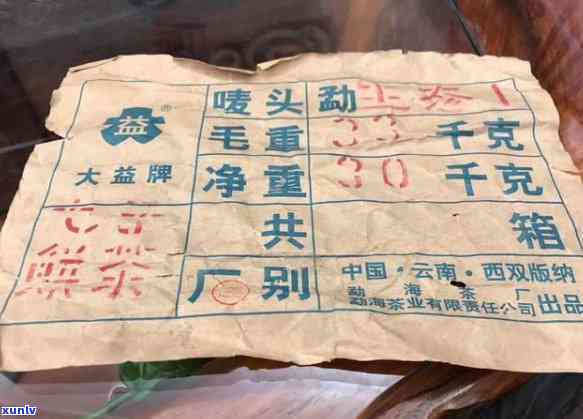 益
®
大益牌
七子
饼茶
唛头 勐
毛重 33 千克
净重 30 千克
共 箱
厂别
中国·云南·西双版纳
勐海茶厂
勐海茶业有限责任公司 出品
xunlv